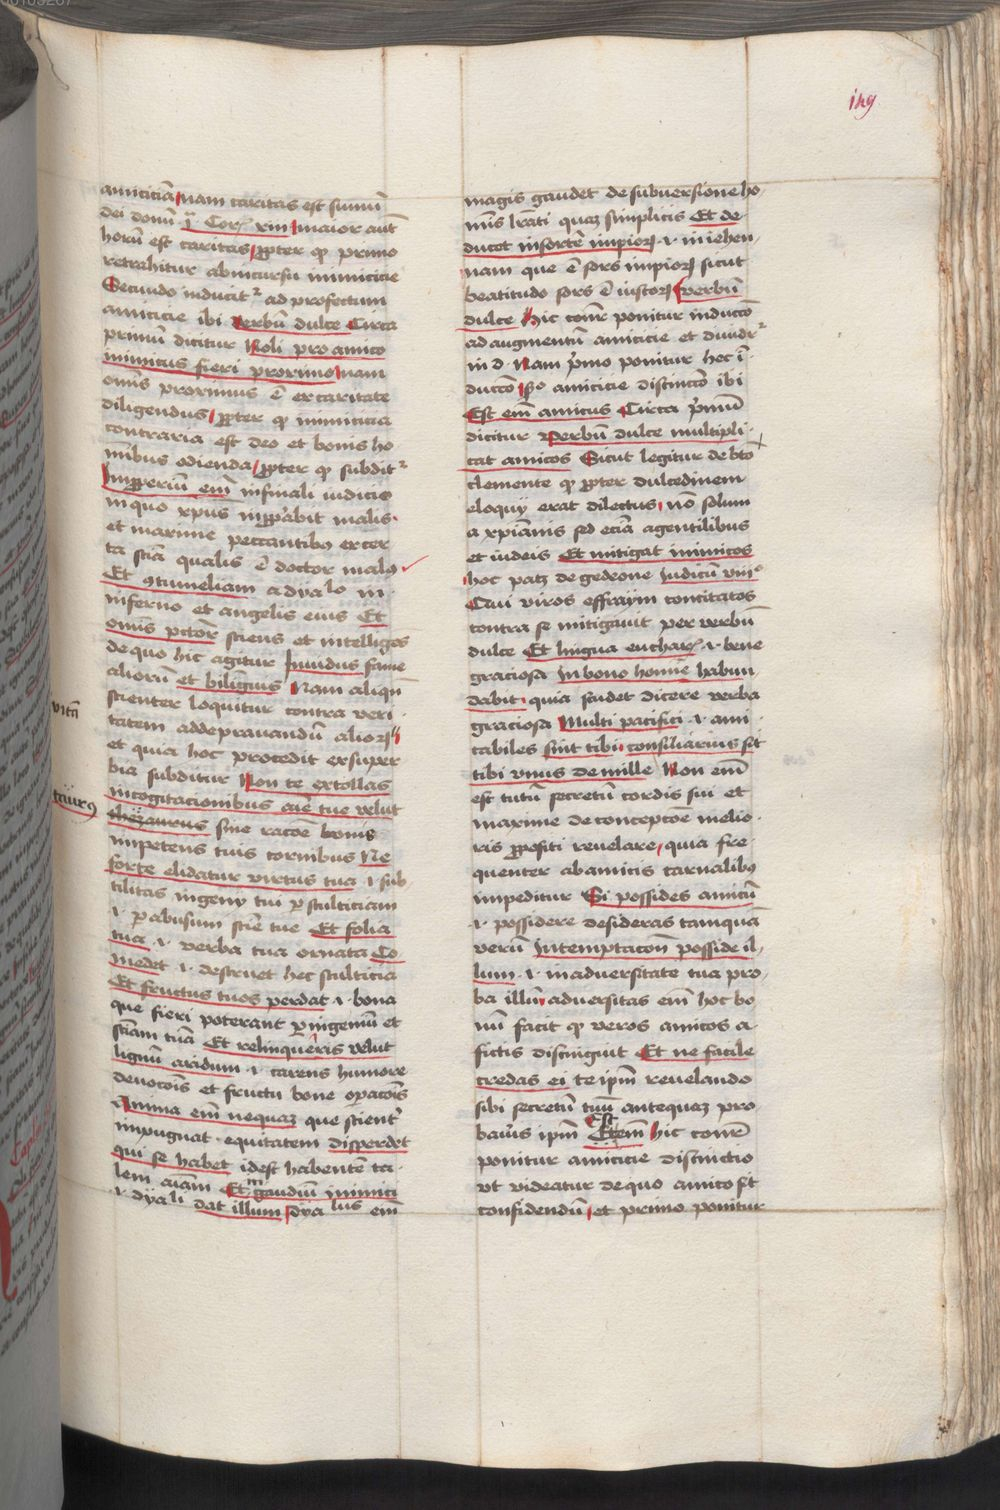 149
amiciciā nam caritas est sumū
dei donū j̄ᵃ Corꝫ xiii maior aūt
horū est caritas ꝓpter qꝫ primo
retrahitur abincursu inimicicie
Secundo inducitᷣ ad profectum
amicicie ibi verbū dulce Circa
primū dicitur Noli pro amico
inimicus fieri proximo nam
om̄is proximus ē ex caritate
diligendus ꝓpter qꝫ inimicicia
contraria est deo et bonis ho
mībus odienda ꝓpter qꝫ subditᷣ
Inpꝓperiū em̄ infinali iudicio
inquo xp̄us inpꝓpabit malis
et maxime peccantibꝰ ex cer
ta sciā qualis ē doctor malꝰ
Et ꝯtumeliam a dyalo in
inferno et angelis eius Et
om̄is pctōr sciens et intelligēs
de quo hic agitur Inuidus fame
aliorū et biligwis Nam aliqū
scienter loquitur contra veri
vitā
tatem addeprauandū aliorꝫ
et quia hoc procedit ex super
bia subditur Non te extollas
incogitacionibus aīe tue velut
taurꝰ
thezaurus sine racōe bonis
impetens tuis cornibus Ne
forte elidatur virtus tua .i. sub
tilitas ingeny tui ꝑ stulticiam
.i. ꝑ abusum sciē tue Et folia
tua .i. verba tua ornata Co
medet .i. destruet hec stulticia
Et fructus tuos perdat .i. bona
que fieri poterant ꝑ ingeniū et
sciam tuā Et relinqueris velut
lignū aridum .i. carens humore
deuocōis et fructu bone oꝑacōis
Anima em̄ nequaꝫ que scientᷣ
inpugnat equitatem disperdet
qui se habet idest habentē ta
lem aīam Et ī gaudiū inimici
.i. dyali dat illum dyalus em̄
magis gaudet de subuersione ho
mīs lrāti quaꝫ simplicis Et de
ducet insortē impiorꝫ .i. iniehen
nam que ē sors impiorꝫ sicut
beatitudo sors ē iustorꝫ verbū
dulce Hic cōnr ponitur inductō
ad augmentū amicicie et diuidrᷣ
in d Nam pͥmo ponitur hec ī
ductō sͦo amicicie distinctō ibi
Est em̄ amicus Circa pͥmū
dicitur Verbū dulce multipli
cat amicos Sicut legitur de btō
clemente qꝫ ꝓpter dulcedinem
eloquy erat dilectus nō solum
a xpīanis sed eciā agentilibus
et iudeis Et mitigat inimicos
hoc patꝫ de gedeone Iudicū viiiᵒ
Qui viros effraym concitatos
contra se mitigauit per verbū
dulce Et lingua eucharꝫ .i. bene
graciosa In bono homīe habun
dabit quia studet dicere verba
graciosa Multi pacifici .i. ami
cabiles sint tibi consiliarius sit
tibi vnus de mille Non em̄
est tutū secretū cordis sui et
maxime de conceptōe melio
ris ꝓpositi reuelare quia fre
quenter ab amicis carnalibꝰ
impeditur Si possides amicū
.i. possidere desideras tamquā
verū Intemptacōn posside il
lum .i. inaduersitate tua pro
ba illū aduersitas em̄ hoc bo
nū facit qꝫ veros amicos a
fictis distinguit Et ne facile
credas ei te ipm̄ reuelando
sibi secretū tuū antequaꝫ pro
baūis ipm̄ Est Etem̄ Hic cōnr
ponitur amicicie distinctio
vt videatur de quo amico sit
confidendū et primo ponitur